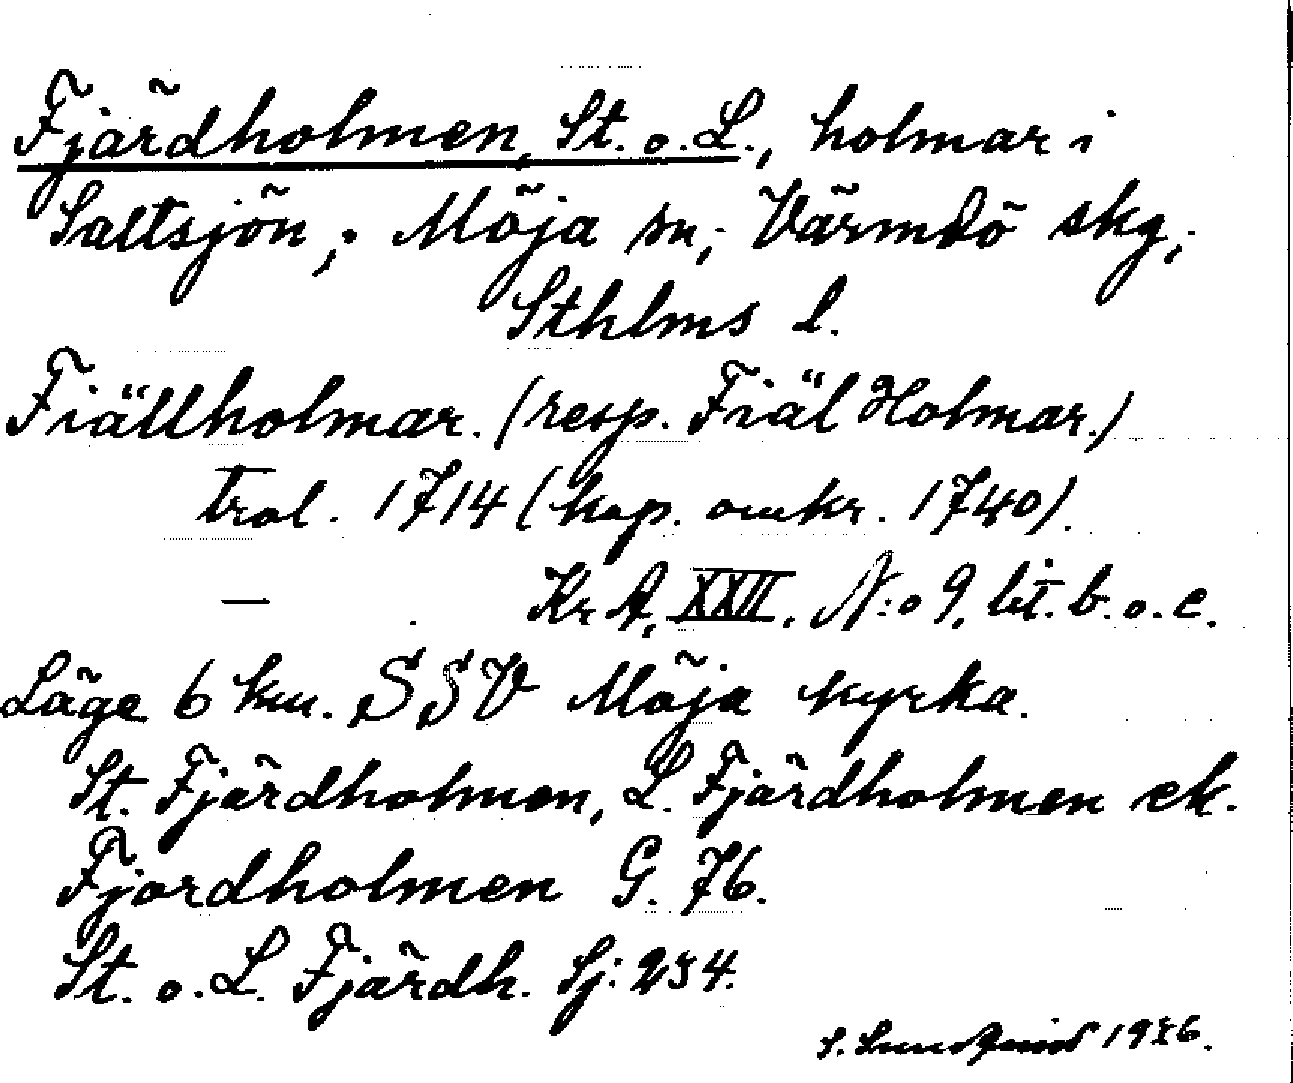 Fjärdholmen, St. o. L., holmar i
Saltsjön; Möja sn, Värmdö skg,
Sthlms l.
Fiällholmar. (resp. Fiäl Holmar.)
trol. 1714 (kop. omkr. 1740).
— Kr A, XXII. N:o 9, lit. b. o. c.
Läge 6 km. SSV Möja kyrka.
St. Fjärdholmen, L. Fjärdholmen ek.
Fjordholmen G. 76.
St. o. L. Fjärdh. Sj: 234.
S. 1936.